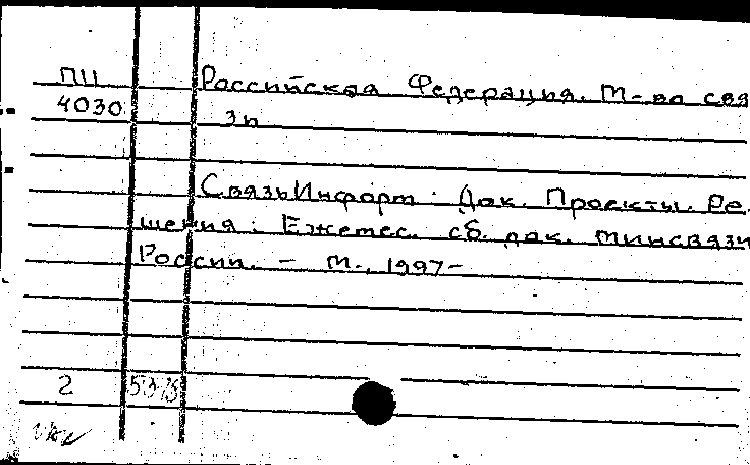 П11
4030
Российская Федерация. М-во свя
зи
СвязьИнформ : Док. Проекты. Ре-
шения : Ежемес. сб. док. Минсвязи
России. – М., 1997–
2